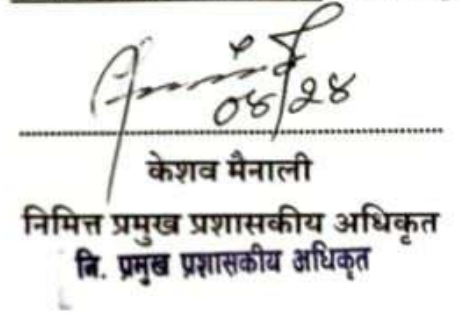 ०४/२४
केशव मैनाली
निमित्त प्रमुख प्रशासकीय अधिकृत
नि. प्रमुख प्रशासकीय अधिकृत